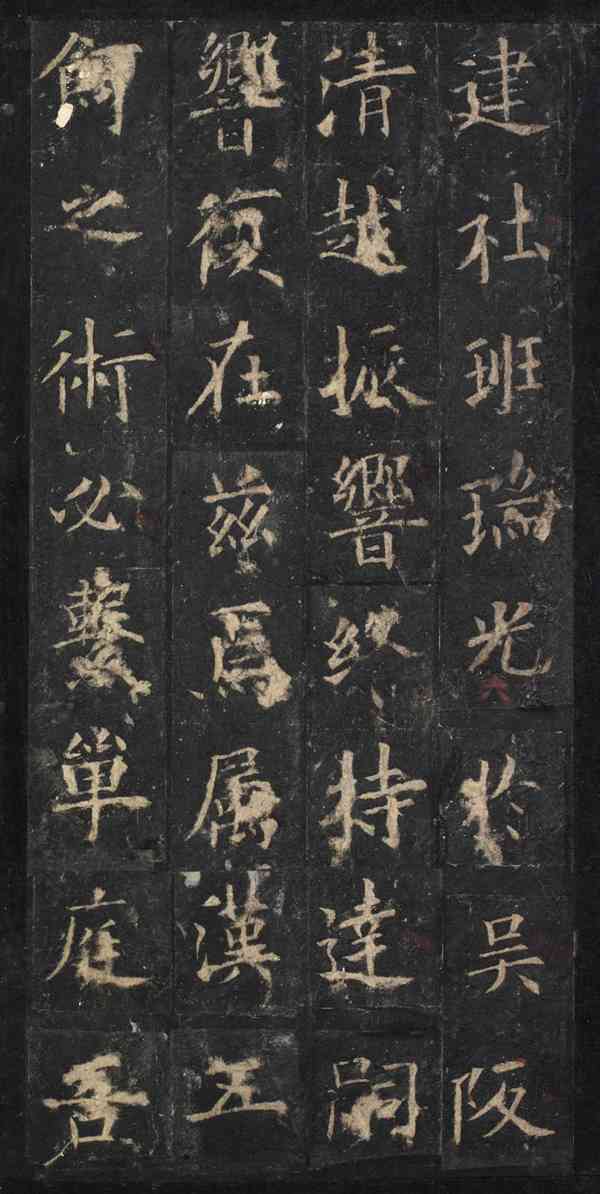 建社班瑞光於吴阪
清越振響終特達嗣
響復在茲焉属漢五
餌之術必繫單庭吾